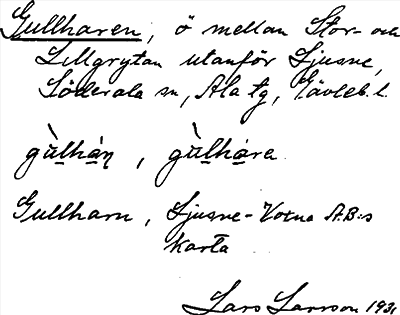 Gullharen, ö mellan Stor- och
Lillgrytan utanför Ljusne,
Söderala sn, Ala tg, Gävleb. l.
gùlhán, gùlháre
Gullharn, Ljusne-Voxna A.B:s
karta
Lars Larsson 1931